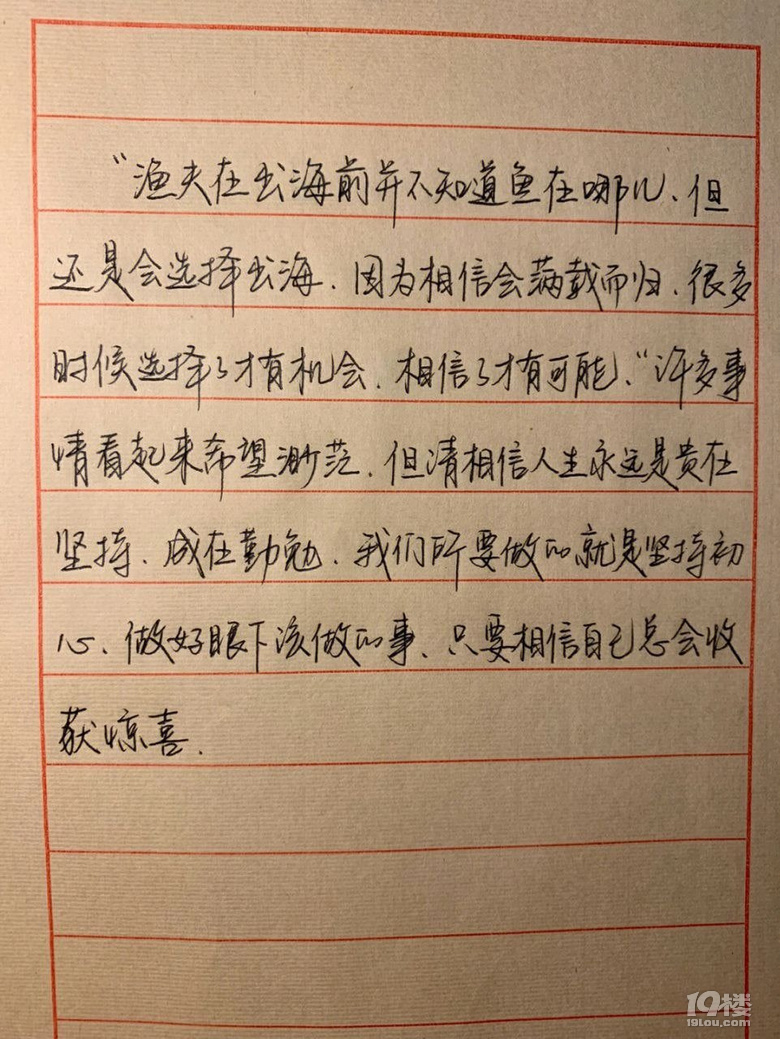 “渔夫在出海前并不知道鱼在哪儿、但
还是会选择出海、因为相信会满载而归、很多
时候选择了才有机会、相信了才有可能、“许多事
情看起来希望渺茫、但请相信人生永远是贵在
坚持、成在勤勉、我们所要做的就是坚持初
心、做好眼下该做的事、只要相信自己总会收
获惊喜.
19楼
19lou.com